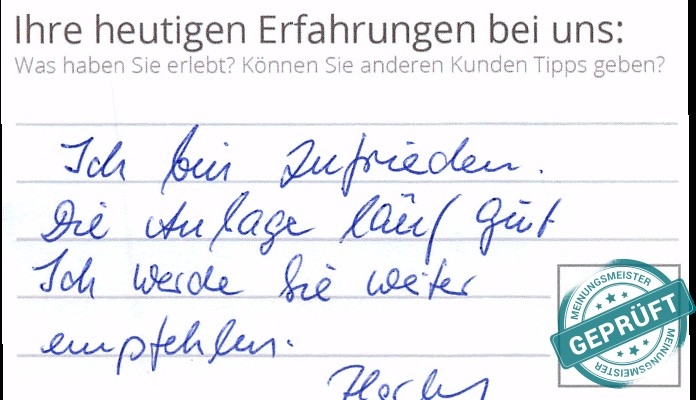 Ihre heutigen Erfahrungen bei uns:
Was haben Sie erlebt? Können Sie anderen Kunden Tipps geben?
Ich bin zufrieden.
Die Anlage läuf gut
Ich werde Sie weiter
empfehlen.
MEINUNGSMEISTER
GEPRÜFT
MEINUNGSMEISTER